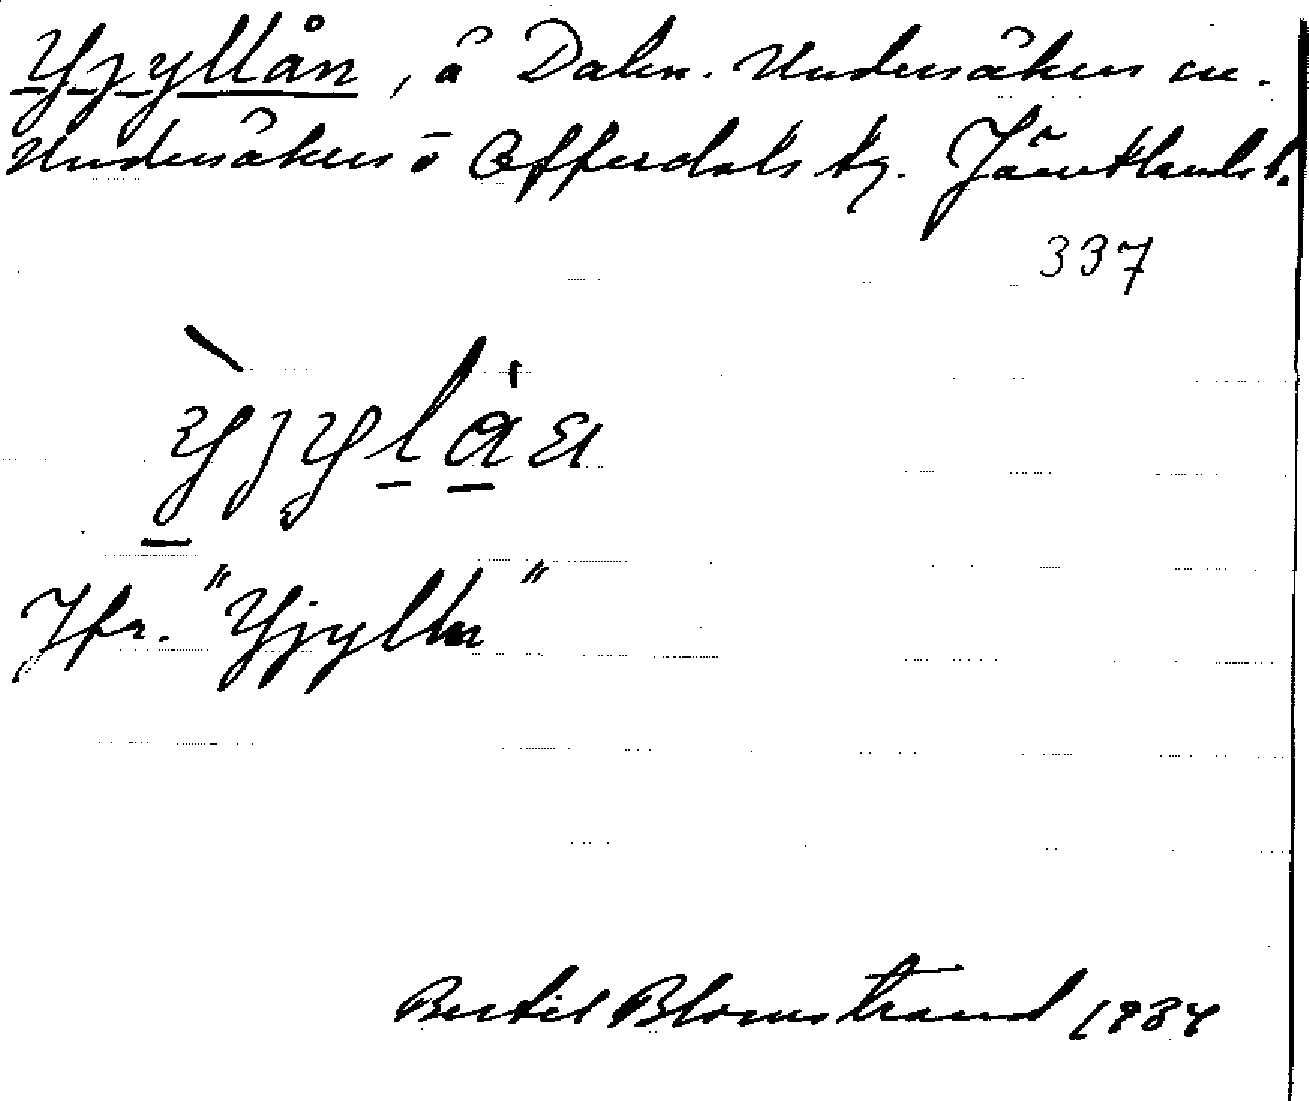 Yjyllån, å Dalen. Undersåkers sn.
Undersåkers o Offerdals tg. Jämtlands l.
337
Jfr. "Yjylln"
Bertil Blomstrand 1934